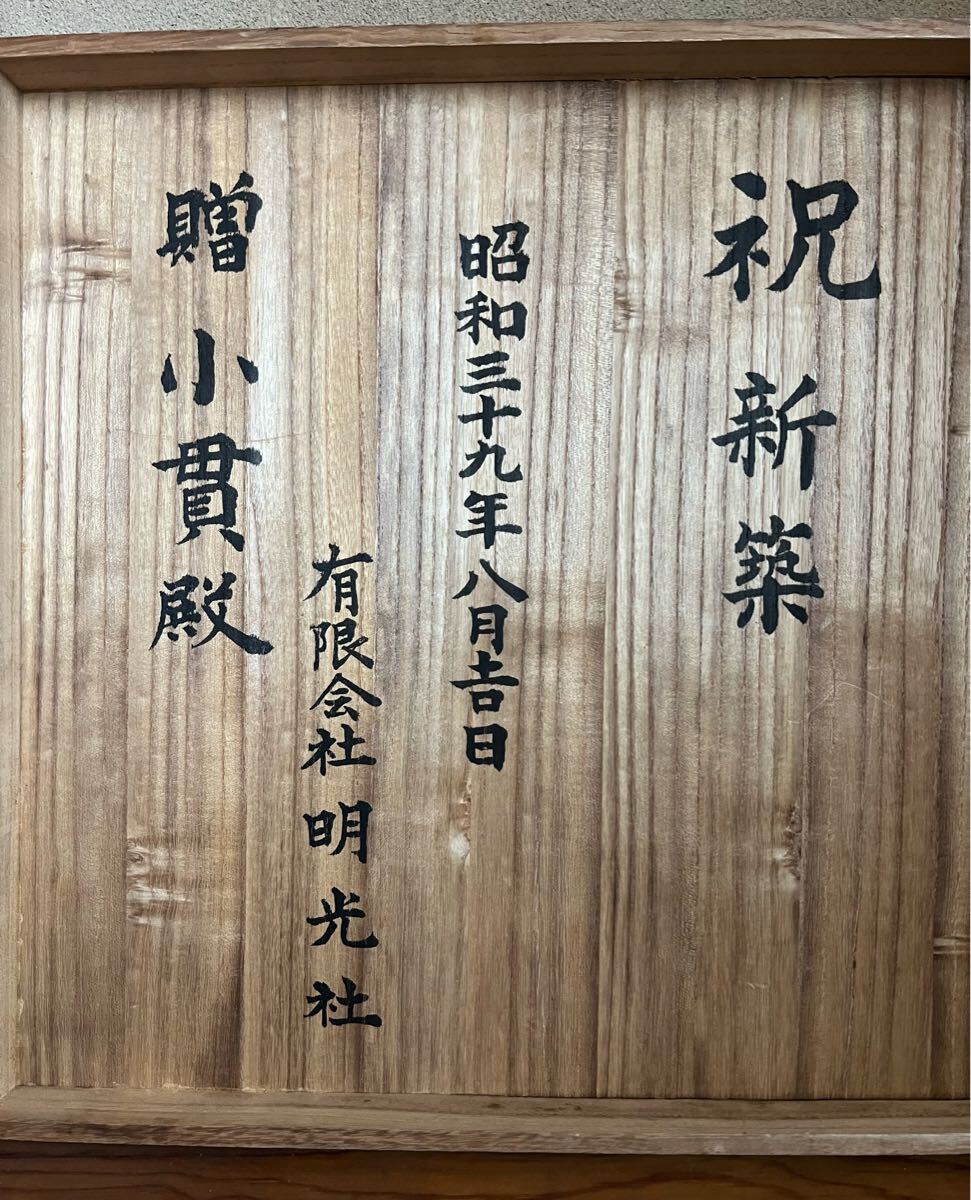 祝新築
昭和三十九年八月吉日
有限会社明光社
贈小貫殿